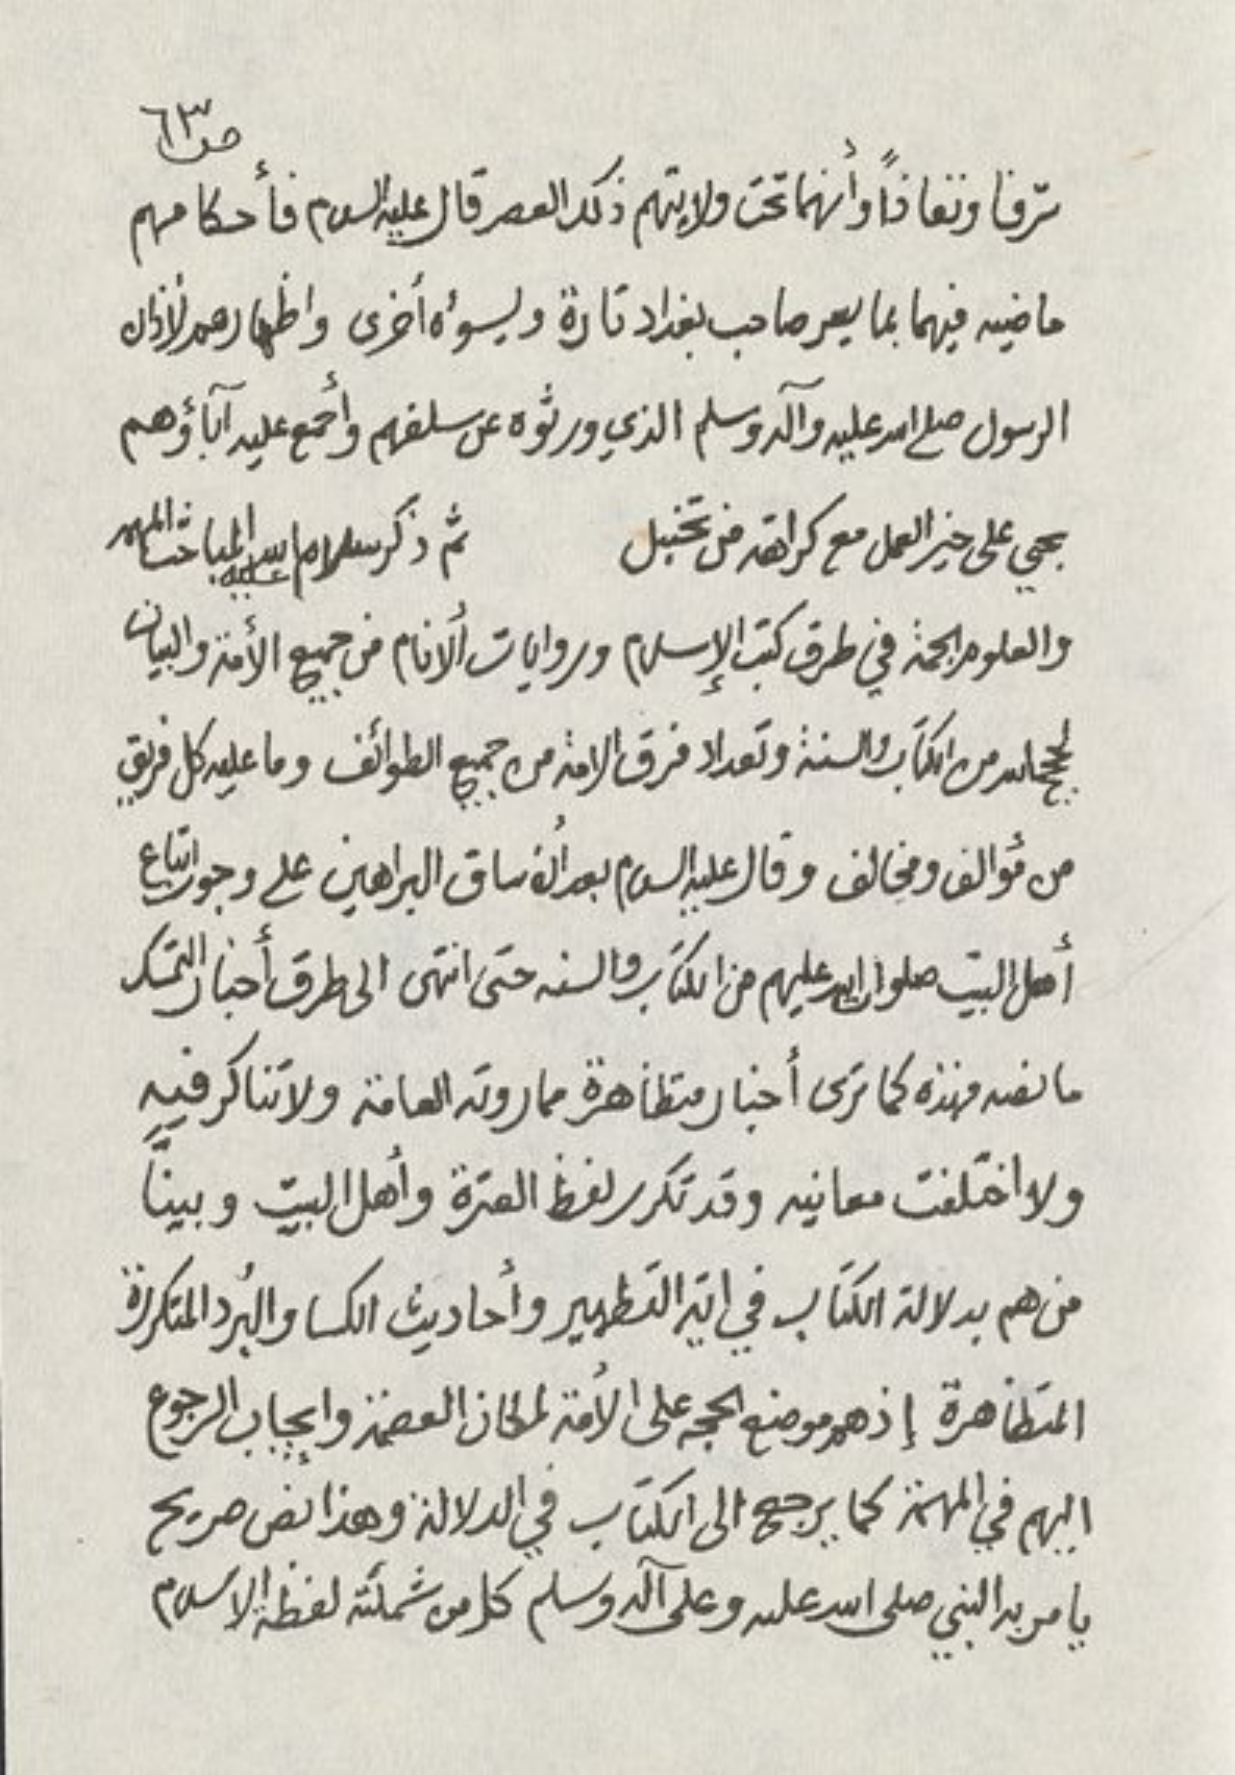 ص ٦٣
شرفا ونفاذاً وأنهما تحت ولايتهم ذلك العصر قال عليه السلام فأحكامهم
ماضيه فيهما بما يسر صاحب بغداد تارة ويسوأه أخرى واظهارهم لأذان
الرسول صلى الله عليه وآله وسلم الذي ورثوه عن سلفهم وأجمع عليه آباؤهم
بحي على خير العمل مع كراهة من تحنبل ثم ذكر الامام عليه السلام المباحث المهمه
والعلوم الجمة في طرق كتب الإسلام وروايات الأنام من جميع الأمة والبيان
لحجج الله من الكتاب والسنة وتعداد فرق الامة من جميع الطوائف وما عليه كل فريق
من مؤالف ومخالف وقال عليه السلام بعد أن ساق البراهين على وجوب اتباع
أهل البيت صلوات الله عليهم من الكتاب والسنه حتى انتهى الى طرق أخبار التمسك
ما نصه فهذه كما ترى أخبار متظاهرة مما روته العامة ولا تناكر فيه
ولا اختلفت معانيه وقد تكرر لفظ العترة وأهل البيت وبينّا
من هم بدلالة الكتاب في اية التطهير وأحاديث الكسا والبُرد المتكررة
المتظاهرة إذ هم موضع الحجه على الأمة لمكان العصمة وإيجاب الرجوع
اليهم في المهمة كما يرجع الى الكتاب في الدلالة وهذا نص صريح
يا مريد النبي صلى الله عليه وعلى آله وسلم كل من شملته لفظة الاسلام